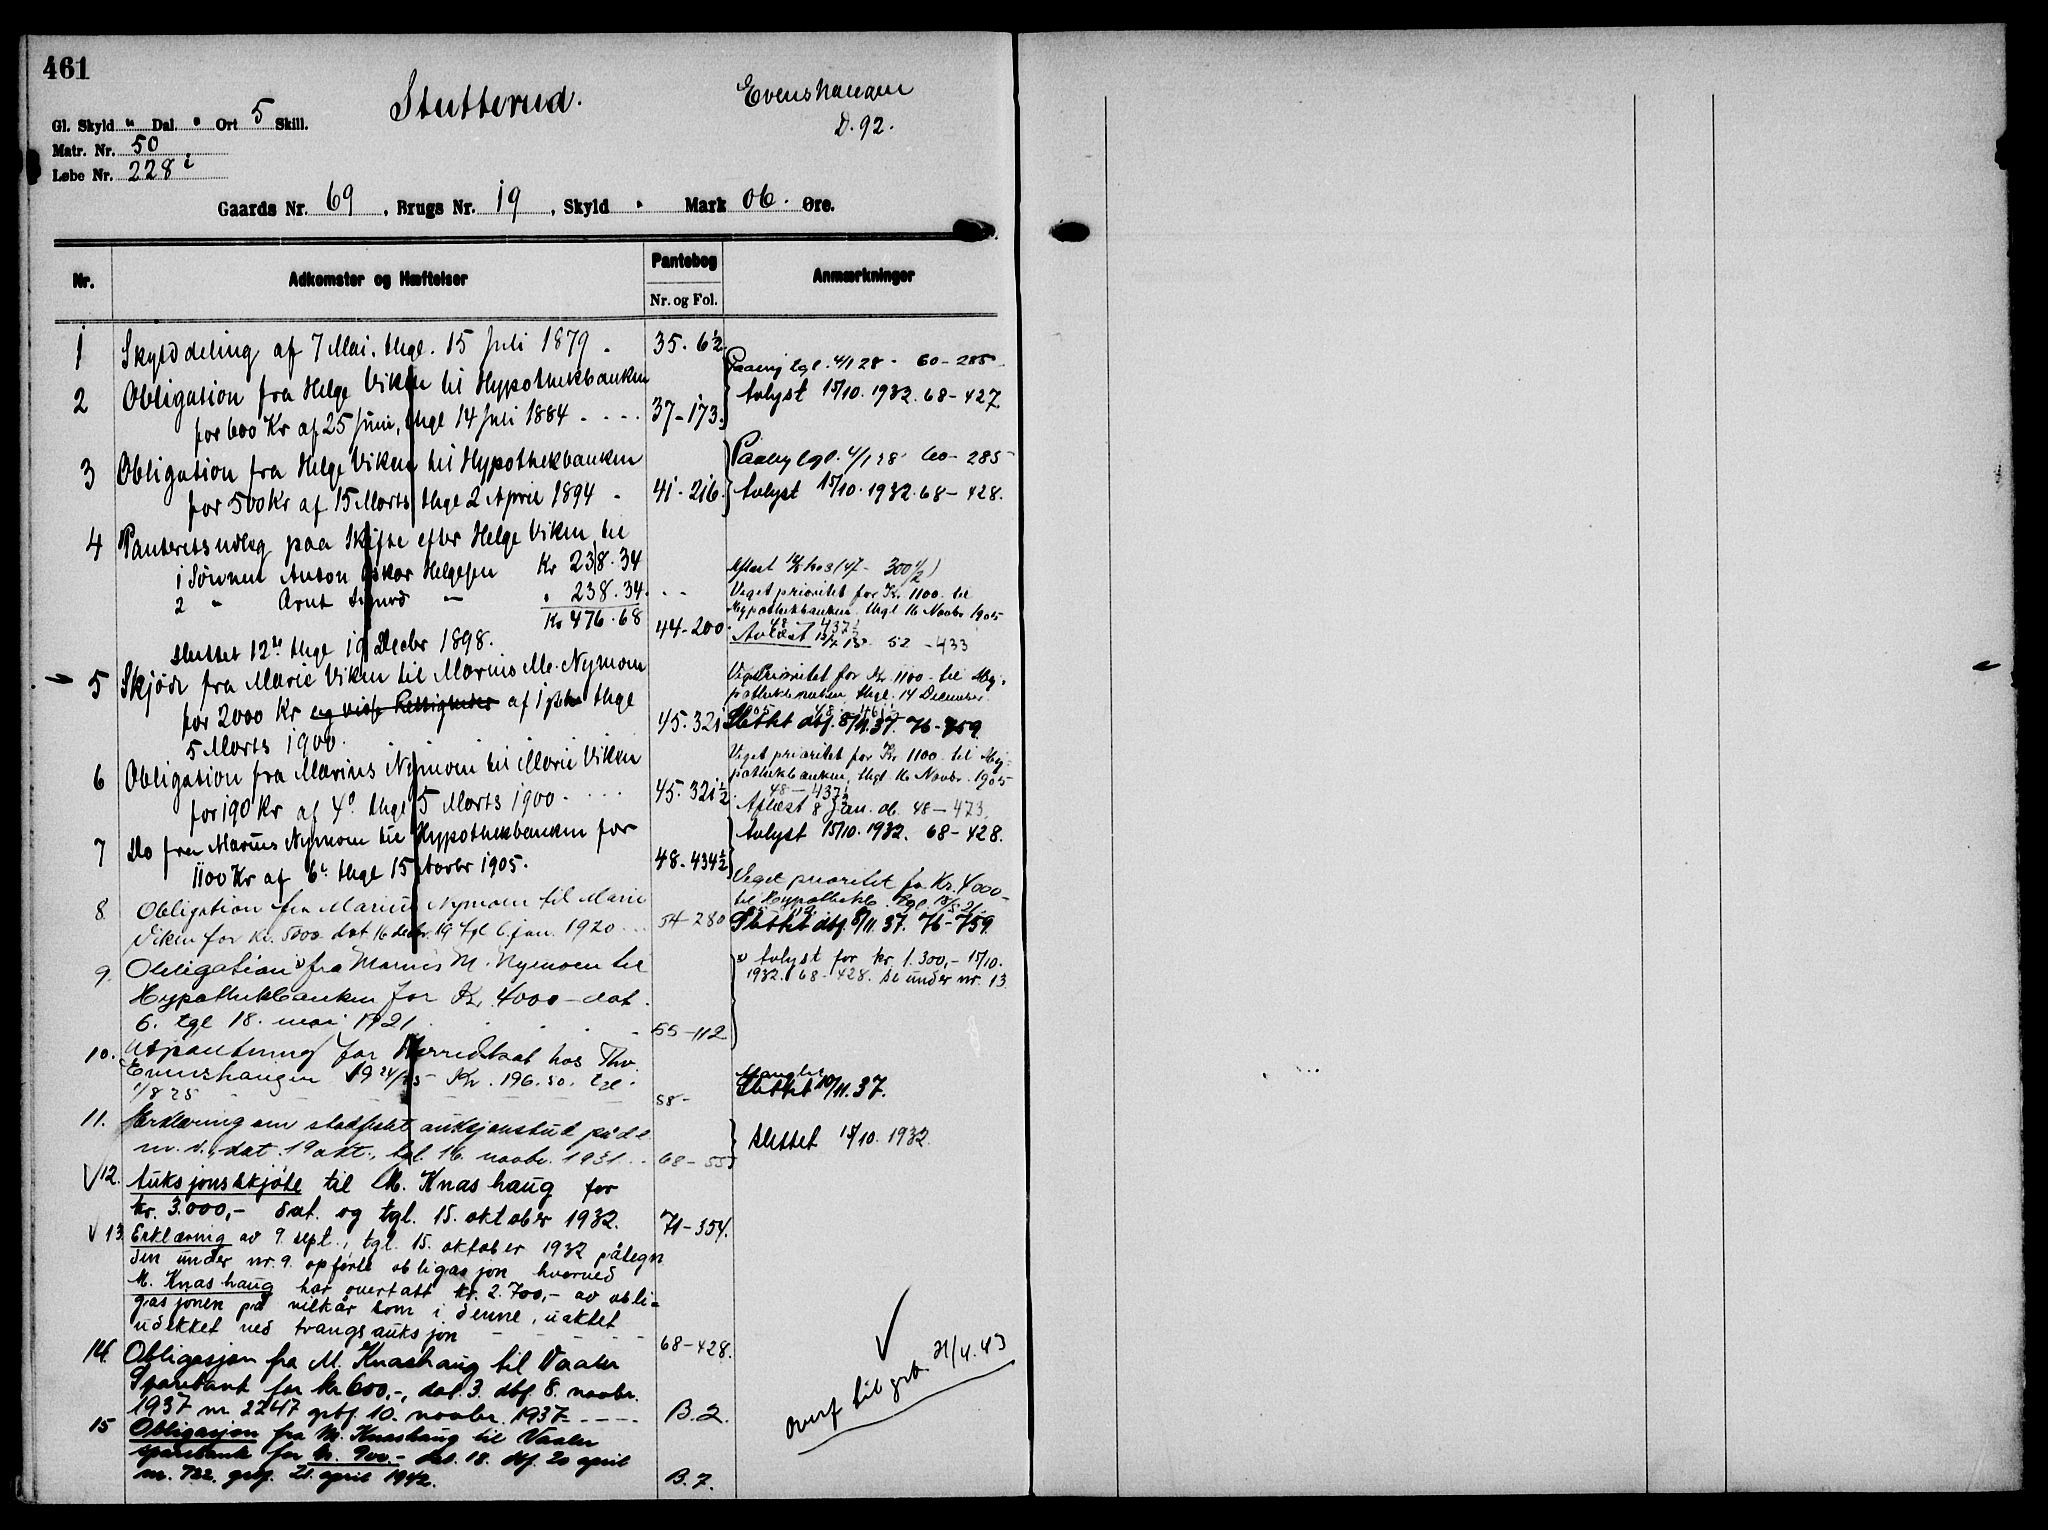 461
Stutterud.
Evenshaugen
D. 92.
Gl. Skyld " Dal. " Ort 5 Skill.
Matr. Nr. 50
Løbe Nr. 228 i
Gaards Nr. 69, Brugs Nr. 19, Skyld " Mark 06. Øre.
Nr.
Adkomster og Hæftelser
Pantebog
Nr. og Fol.
Anmærkninger
1 Skylddeling af 7 Mai, thgl. 15 Juli 1879. 35. 6½
2 Obligation fra Helge Viken til Hypothekbanken
for 600 Kr af 25 Juni, thgl 14 Juli 1884 - - - - 37-173.
tgl. 4/1 28 - 60-285
Avlyst 15/10. 1932. 68-427.
3 Obligation fra Helge Viken til Hypothekbanken
for 500 Kr af 15 Marts thgl 2 April 1894 - 41-216.
tgl. 4/1 28 60-285
Avlyst 15/10. 1932. 68-428.
4 Panteretsudlæg paa Skifte efter Helge Viken til
1 Sønnen Anton Oskar Helgesen Kr 238.34
2 " Arnt Sigurd - " 238.34
Kr 476.68
sluttet 12te thgl 19 Decbr 1898. 44-200
Veget prioritet for Kr. 1100 til
Hypothekbanken thgl 16 Novbr 1905
48-437½
52-433
5 Skjøde fra Marie Viken til Marius M. Nymoen
for 2000 Kr og visse Rettigheder af thgl
5 Marts 1900. 45.321
Veget Prioritet for Kr 1100 til Hy-
pothekbanken thgl. 14 December
1905 48-461½
Slettet dbf. 8/11.37. 76-759.
6 Obligation fra Marius Nymoen til Marie Viken
for 190 Kr af 4de thgl 5 Marts 1900 - 45.321½
Veget prioritet for Kr. 1100 til Hy-
pothekbanken, thgl 16 Novbr. 1905
48-437½
Aflæst 8 Jan. 06. 48-473.
7 Do fra Marius Nymoen til Hypothekbanken for
1100 Kr af 6te thgl 15 Novbr 1905. 48-434½
Avlyst 15/10. 1932. 68-428.
8 Obligation fra Marius Nymoen til Marie
Viken for kr. 5000 dat 16 decbr. 19 tgl 6 jan. 1920 - - - 54-280
Veget prioritet for Kr. 4000-
til Hypothekb. tgl. 18/5 21.
Slettet dbf. 8/11.37. 76-759.
9. Obligation x) fra Marius M. Nymoen til
Hypothekbanken for Kr. 4000- dat.
6. tgl 18. mai 1921 - 55-112
x Avlyst for kr. 1.300,- 15/10.
1932. 68-428. se under nr. 13
10. Utpantning for Herredskat hos Thv.
Evenshaugen 1924/25 Kr. 196.50. tgl.
1/8 25 - - - 58-
Mangler
Slettet 10/11.37.
11. Erklæring om stadfestet auksjonsbud på d.e.
m. v., dat. 19 okt., tgl. 16. novbr. 1931 - - 68-55
Slettet 15/10. 1932.
12. Auksjonsskjøte til M. Knashaug for
kr. 3.000,- dat. og tgl. 15. oktober 1932. 71-354.
13. Erklæring av 9. sept., tgl. 15. oktober 1932 påtegn
den under nr. 9. opførte obligasjon hvorved
M. Knashaug har overtatt kr. 2.700,- av obli=
gasjonen på vilkår som i denne, uaktet
udekket ved tvangsauksjon - - - - 68-428.
14. Obligasjon fra M. Knashaug til Vaaler
Sparebank for kr 600,-, dat. 3. dbf. 8. novbr.
1937 nr 2247 grbf. 10. novbr. 1937 - - - - B. 2.
15 Obligasjon fra M. Knashaug til Vaaler
sparebank for kr. 900.- dat. 18. dbf. 20 april
nr. 722. grbf. 21. april 1942. B. 7.
✓
Overf til grb. 21/4.43